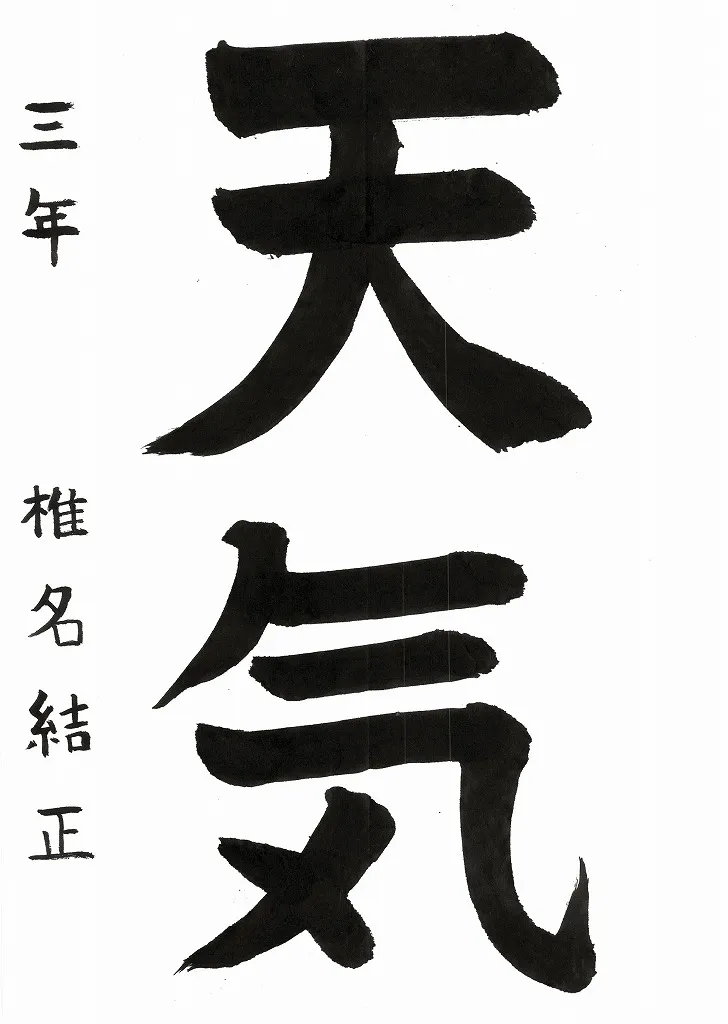 天気
三年 椎名結正